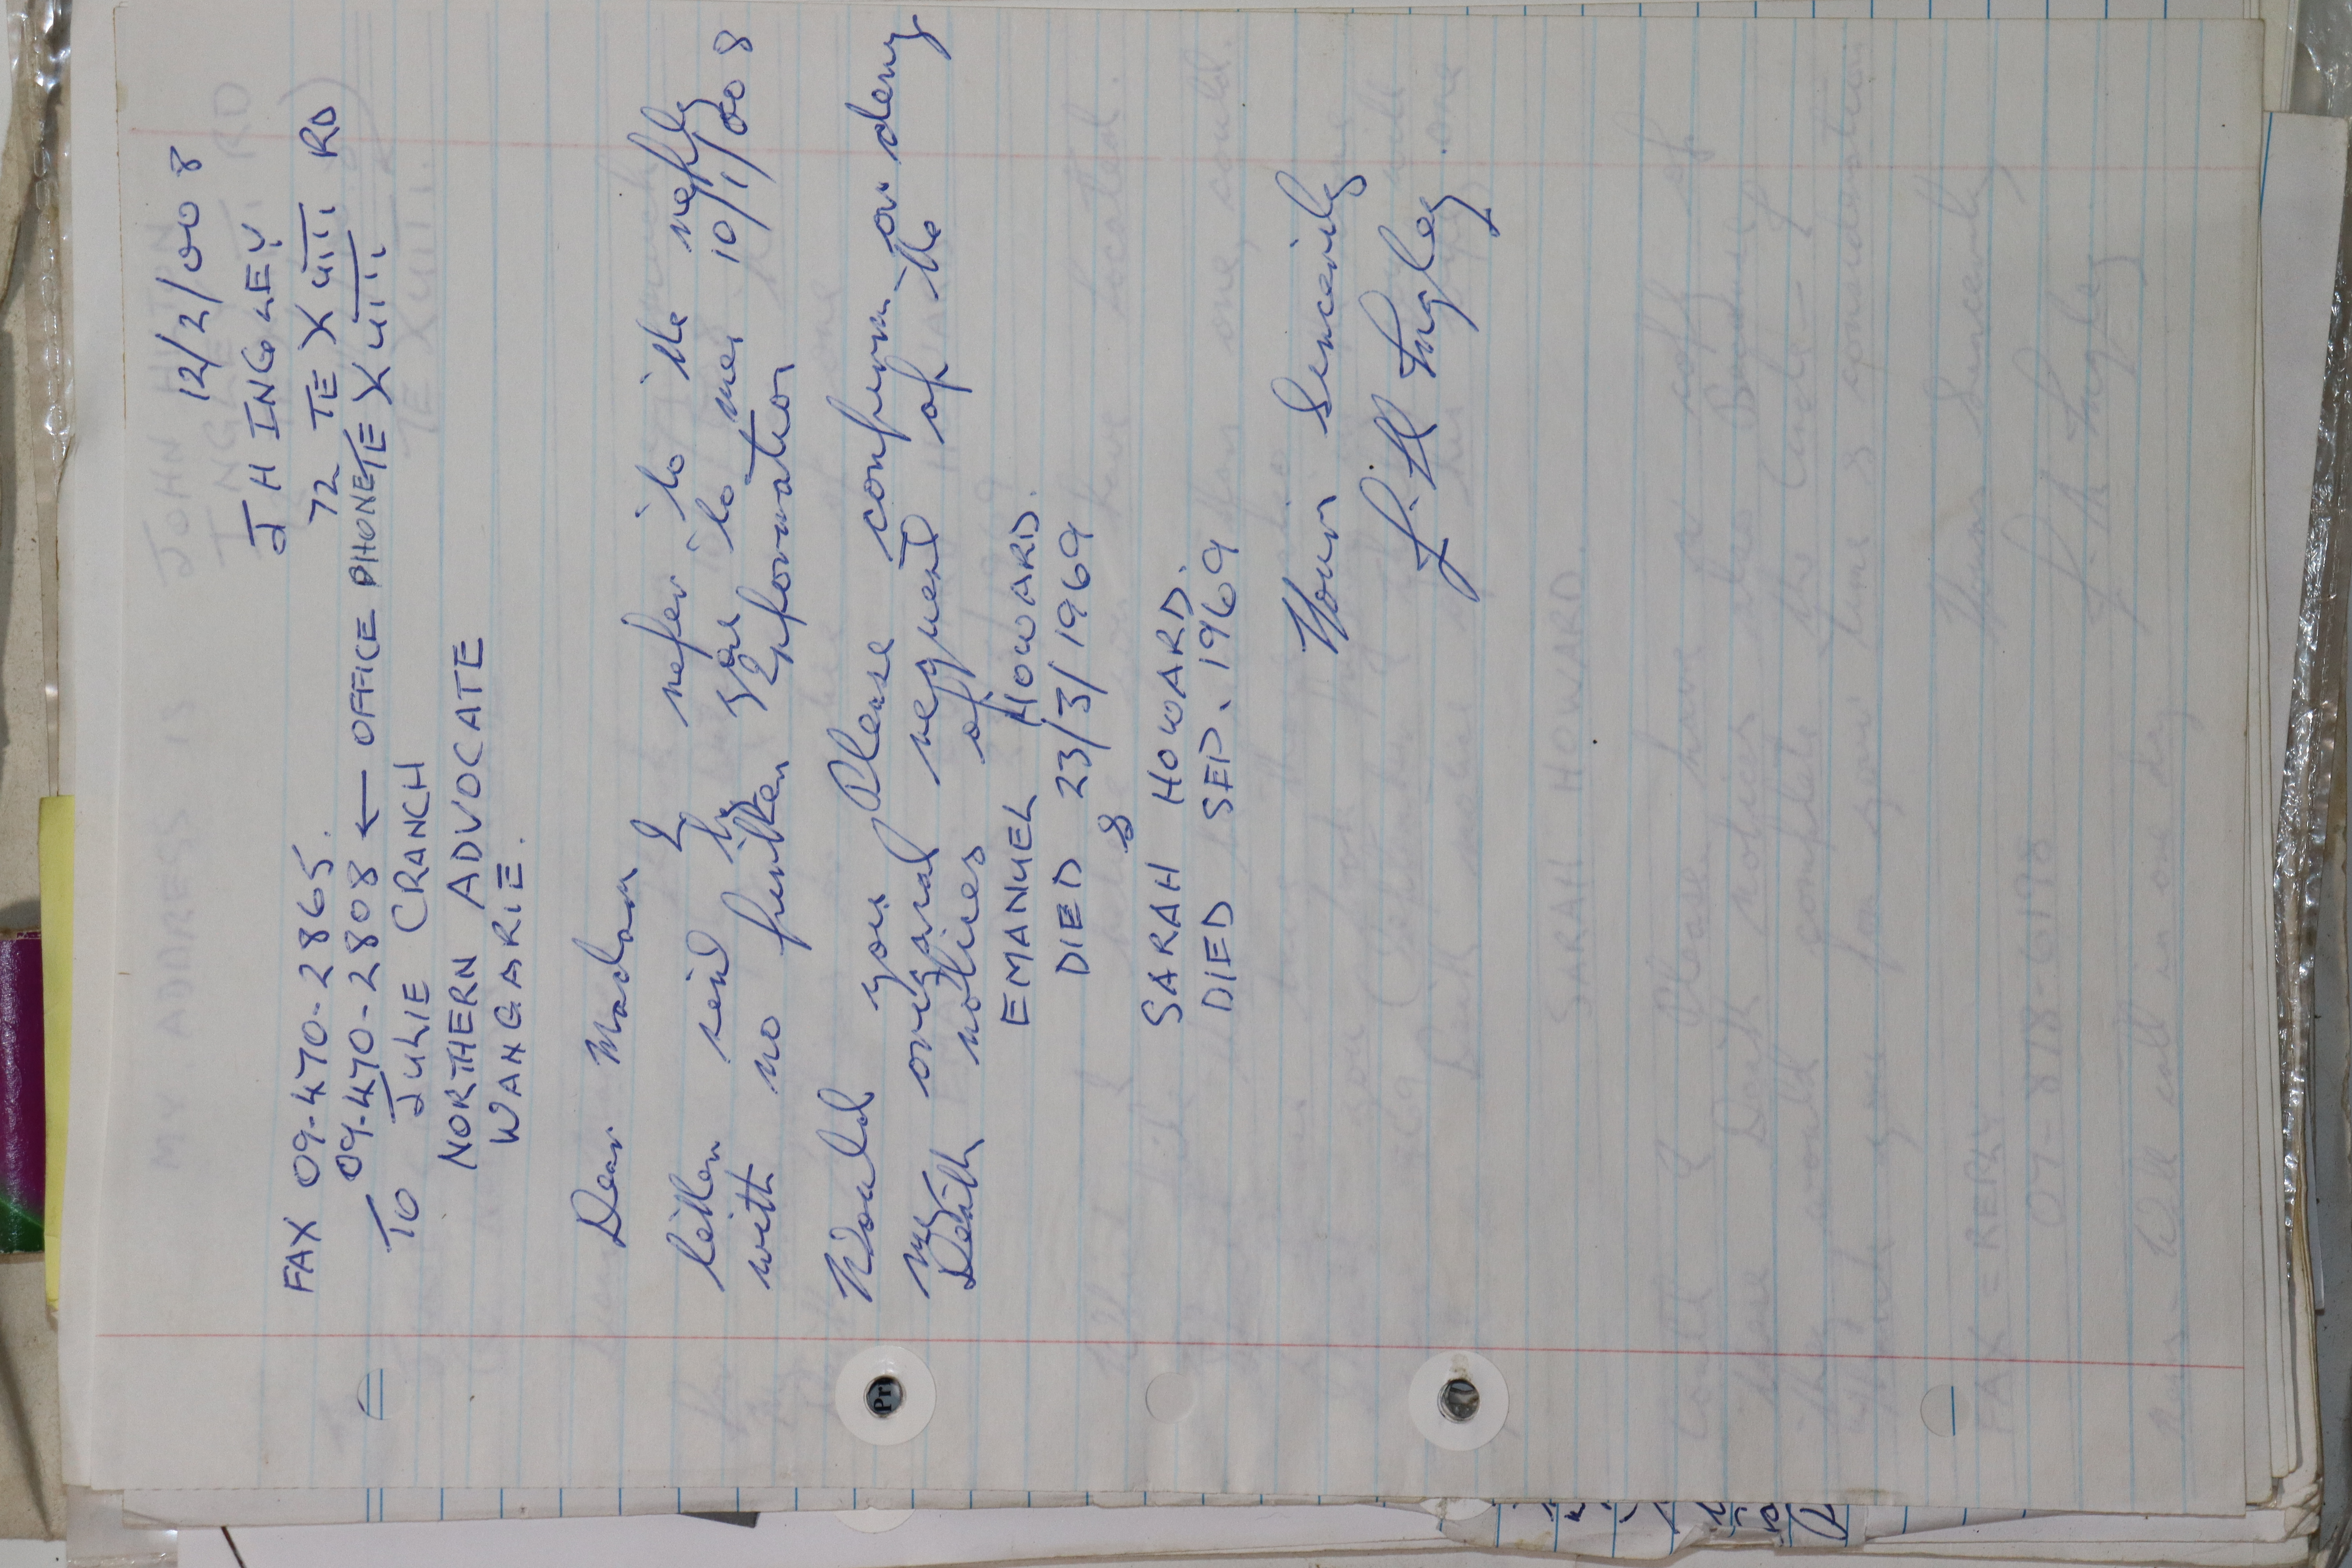 12/2/008
J H INGLEY.
FAX 09-470-2865.
72 TE XUITI RD
09-470-2808 ← OFFICE PHONE TE XUITI
TO JULIE CRANCH
NORTHERN ADVOCATE
WANGARIE.
Dear Madam
I refer to the reply
letter send by you to me 10/1/008
with no further Information
Would you Please confirm or deny
my original request of the
Death notices of
EMANUEL HOWARD.
DIED 23/3/1969
&
SARAH HOWARD.
DIED SEP. 1969
Yours Sincerily
J. H Ingley